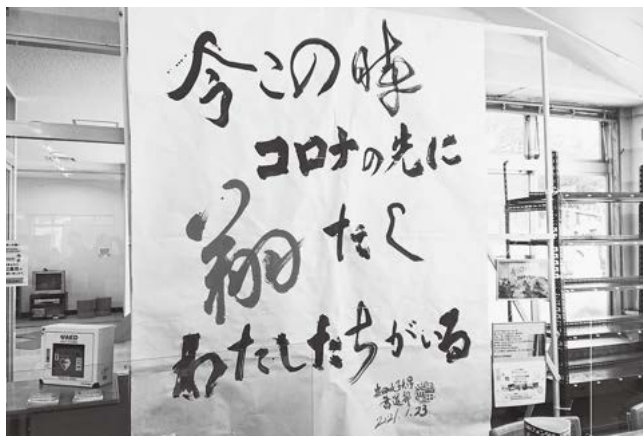 今この時
コロナの先に
翔たく
わたしたちがいる
書道部
2021.1.23
AED